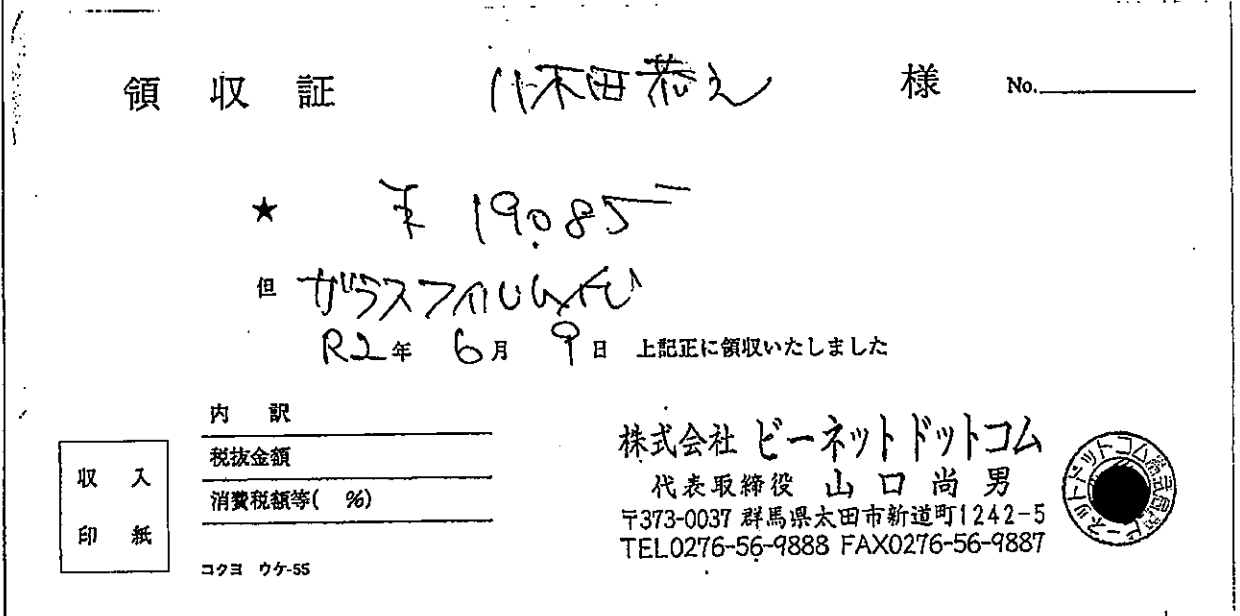 領収証 八木田恭之 様 No.
★ ¥19,085
但 ガラスフィルム代
R2年 6月 9日 上記正に領収いたしました
内訳
税抜金額
消費税額等( %)
収入
印紙
コクヨ ウケ-55
株式会社 ビーネットドットコム
代表取締役 山口尚男
〒373-0037 群馬県太田市新道町1242-5
TEL0276-56-9888 FAX0276-56-9887